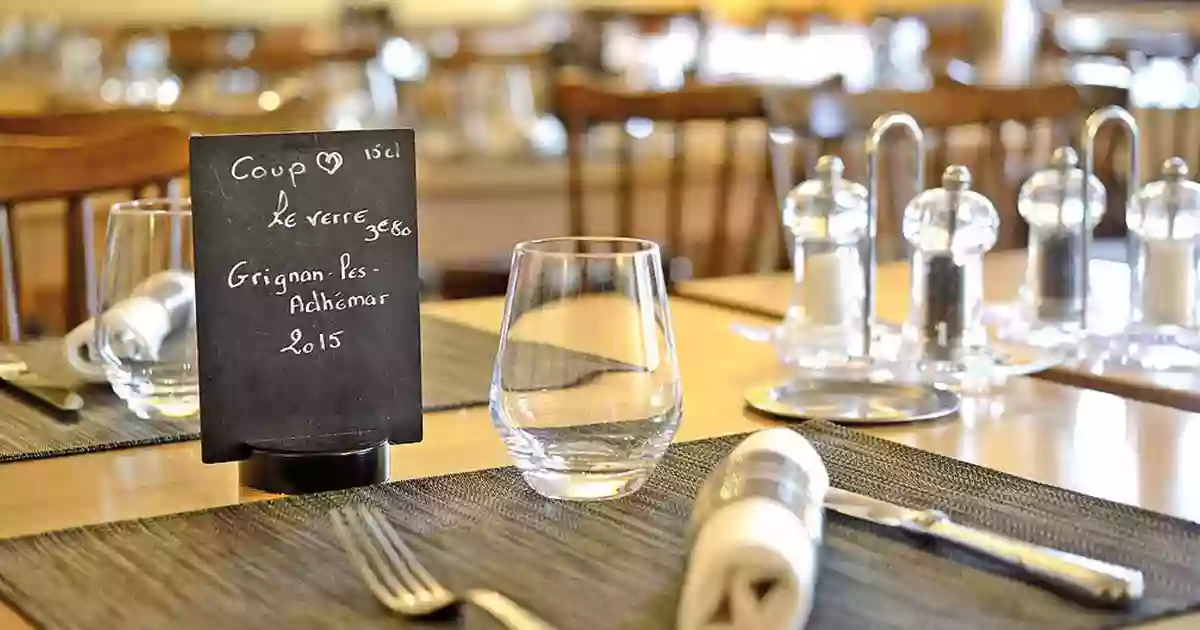 Coup ♡ 15cl
Le verre
3€80
Grignan-les-
Adhémar
2015